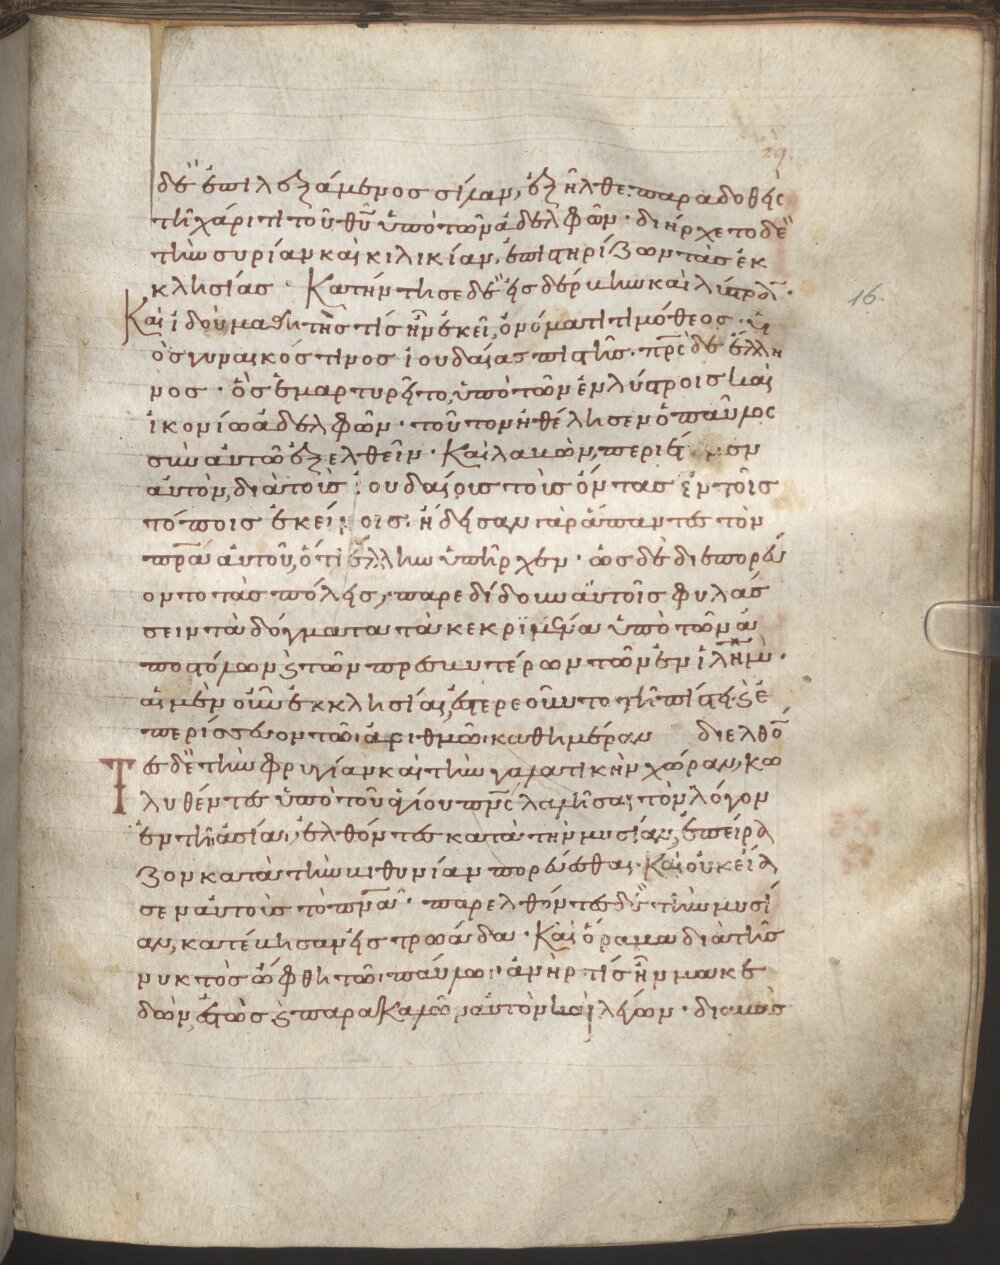 29.
δὲ ἐπιλεξάμενος σίλαν, ἐξῆλθε παραδοθεὶς
τῆ χάριτι τοῦ θῦ ὑπὸ τῶν ἀδελφῶν · διήρχετο δὲ
τὴν συρίαν καὶ κιλικίαν, ἐπιστηρίζων τὰς ἐκ
κλησίας · Κατήντησε δὲ εἰς δέρβην καὶ λύστραν ·
16.
Καὶ ἰδοὺ μαθητὴς τίς ἦν ἐκεῖ, ὀνόματι τιμόθεος · ὑ
ὸς γυναικός τινος ἰουδαίας πιστῆς · πρς δὲ ἕλλη
νος · ὃς ἐμαρτυρεῖτο, ὑπὸ τῶν ἐν λύστροις καὶ
ἰκονίω ἀδελφῶν · τοῦτον ἠθέλησεν ὁ παῦλος
σὺν αὐτῶ ἐξελθεῖν · Καὶ λαβὼν, περιέτεμεν
αὐτὸν, διὰ τοὺς ἰουδαίους τοὺς ὄντας ἐν τοῖς
τόποις ἐκείνοις · ἤδεισαν γὰρ ἅπαντες τὸν
πρα αὐτοῦ, ὅτι ἕλλην ὑπῆρχεν · ὡς δὲ διεπορεύ
οντο τὰς πόλεις, παρεδίδουν αὐτοῖς φυλάσ
σειν τὰ δόγματα τὰ κεκριμένα ὑπὸ τῶν ἀ
ποστόλων ϗ τῶν πρεσβυτέρων τῶν ἐν ἱλημ ·
αἱ μὲν οὖν ἐκκλησίαι, ἐστερεοῦντο τῆ πίστει ϗ ἐ
περίσσευον τῶ ἀριθμῶ καθημέραν διελθό
Τες δὲ τὴν φρυγίαν καὶ τὴν γαλατικὴν χώραν, κω
λυθέντες ὑπὸ τοῦ ἁγίου πνς λαλῆσαι τὸν λόγον
ἐν τῆ ἀσία · ἐλθόντες κατὰ τὴν μυσίαν, ἐπείρα
ζον κατὰ τὴν βιθυνίαν πορεύεσθαι · Καὶ οὐκ εἴα
σεν αὐτοὺς τὸ πνα · παρελθόντες δὲ τὴν μυσί
αν, κατέβησαν εἰς τρωάδα · Καὶ ὅραμα διὰ τῆς
νυκτὸς ὤφθη τῶ παύλω · ἀνήρ τίς ἦν μακε
δὼν, ἑστὼς ϗ παρακαλῶν αὐτὸν καὶ λέγων · διαβὰς